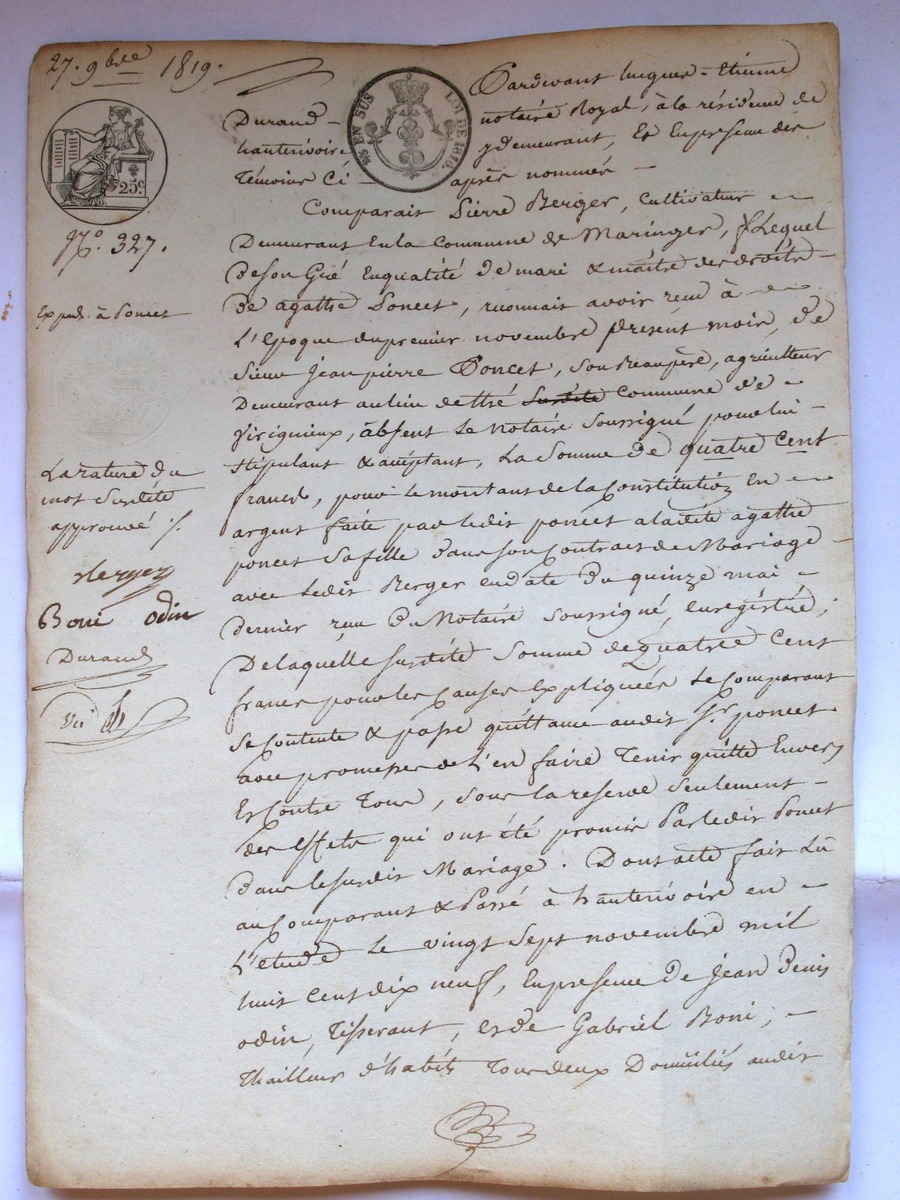 27. 9bre 1819.
5/25 EN SUS LOI DE 1816.
25c
No. 327.
Expéd. à Poncet
La rature du
mot Susdite
approuvé ./.
Berger
Boni odin
Durand
Pardevant Jacques-Etienne
Durand notaire Royal, à la résidence de
hauterivoire y demeurant, Et En presence des
Témoins Ci-après nommés
Comparait Pierre Berger, Cultivateur
Demeurant En la Commune de Maringes, Lequel
De son Gré En qualité De mari & maitre des droits
De agathe Poncet, reconnait avoir recu à
L'epoque du premier novembre présent mois, de
Sieur Jean pierre Poncet, son Beaupère, agriculteur
Demeurant au lieu de susdite Commune de
Virignieux, absent Le Notaire Soussigné pour lui
Stipulant & acceptant, La Somme De quatre Cent
francs, pour le montant de la Constitution En
argent faite par ledit poncet a ladite agathe
poncet Sa fille Dans son Contrat de Mariage
avec Ledit Berger en date Du quinze mai
Dernier reçu Du Notaire Soussigné, enregistré;
De laquelle susdite Somme de quatre Cent
francs pour les Causes Expliquées Le Comparant
Se Contente & passe quittance audit Sr. poncet
avec promesse de L'en faire Tenir quitte Envers
Et Contre Tous, sous la reserve seulement
des Effets qui ont été promis Par ledit Poncet
Dans le susdit Mariage. Dont acte fait Lû
au Comparant & Passé à hauterivoire en
L'etude Le vingt Sept novembre mil
huit Cent dix neuf, En presence De Jean Denis
odin, Tisserant, et de Gabriel Boni,
Thailleur d'habits Tous deux Domiciliés audit